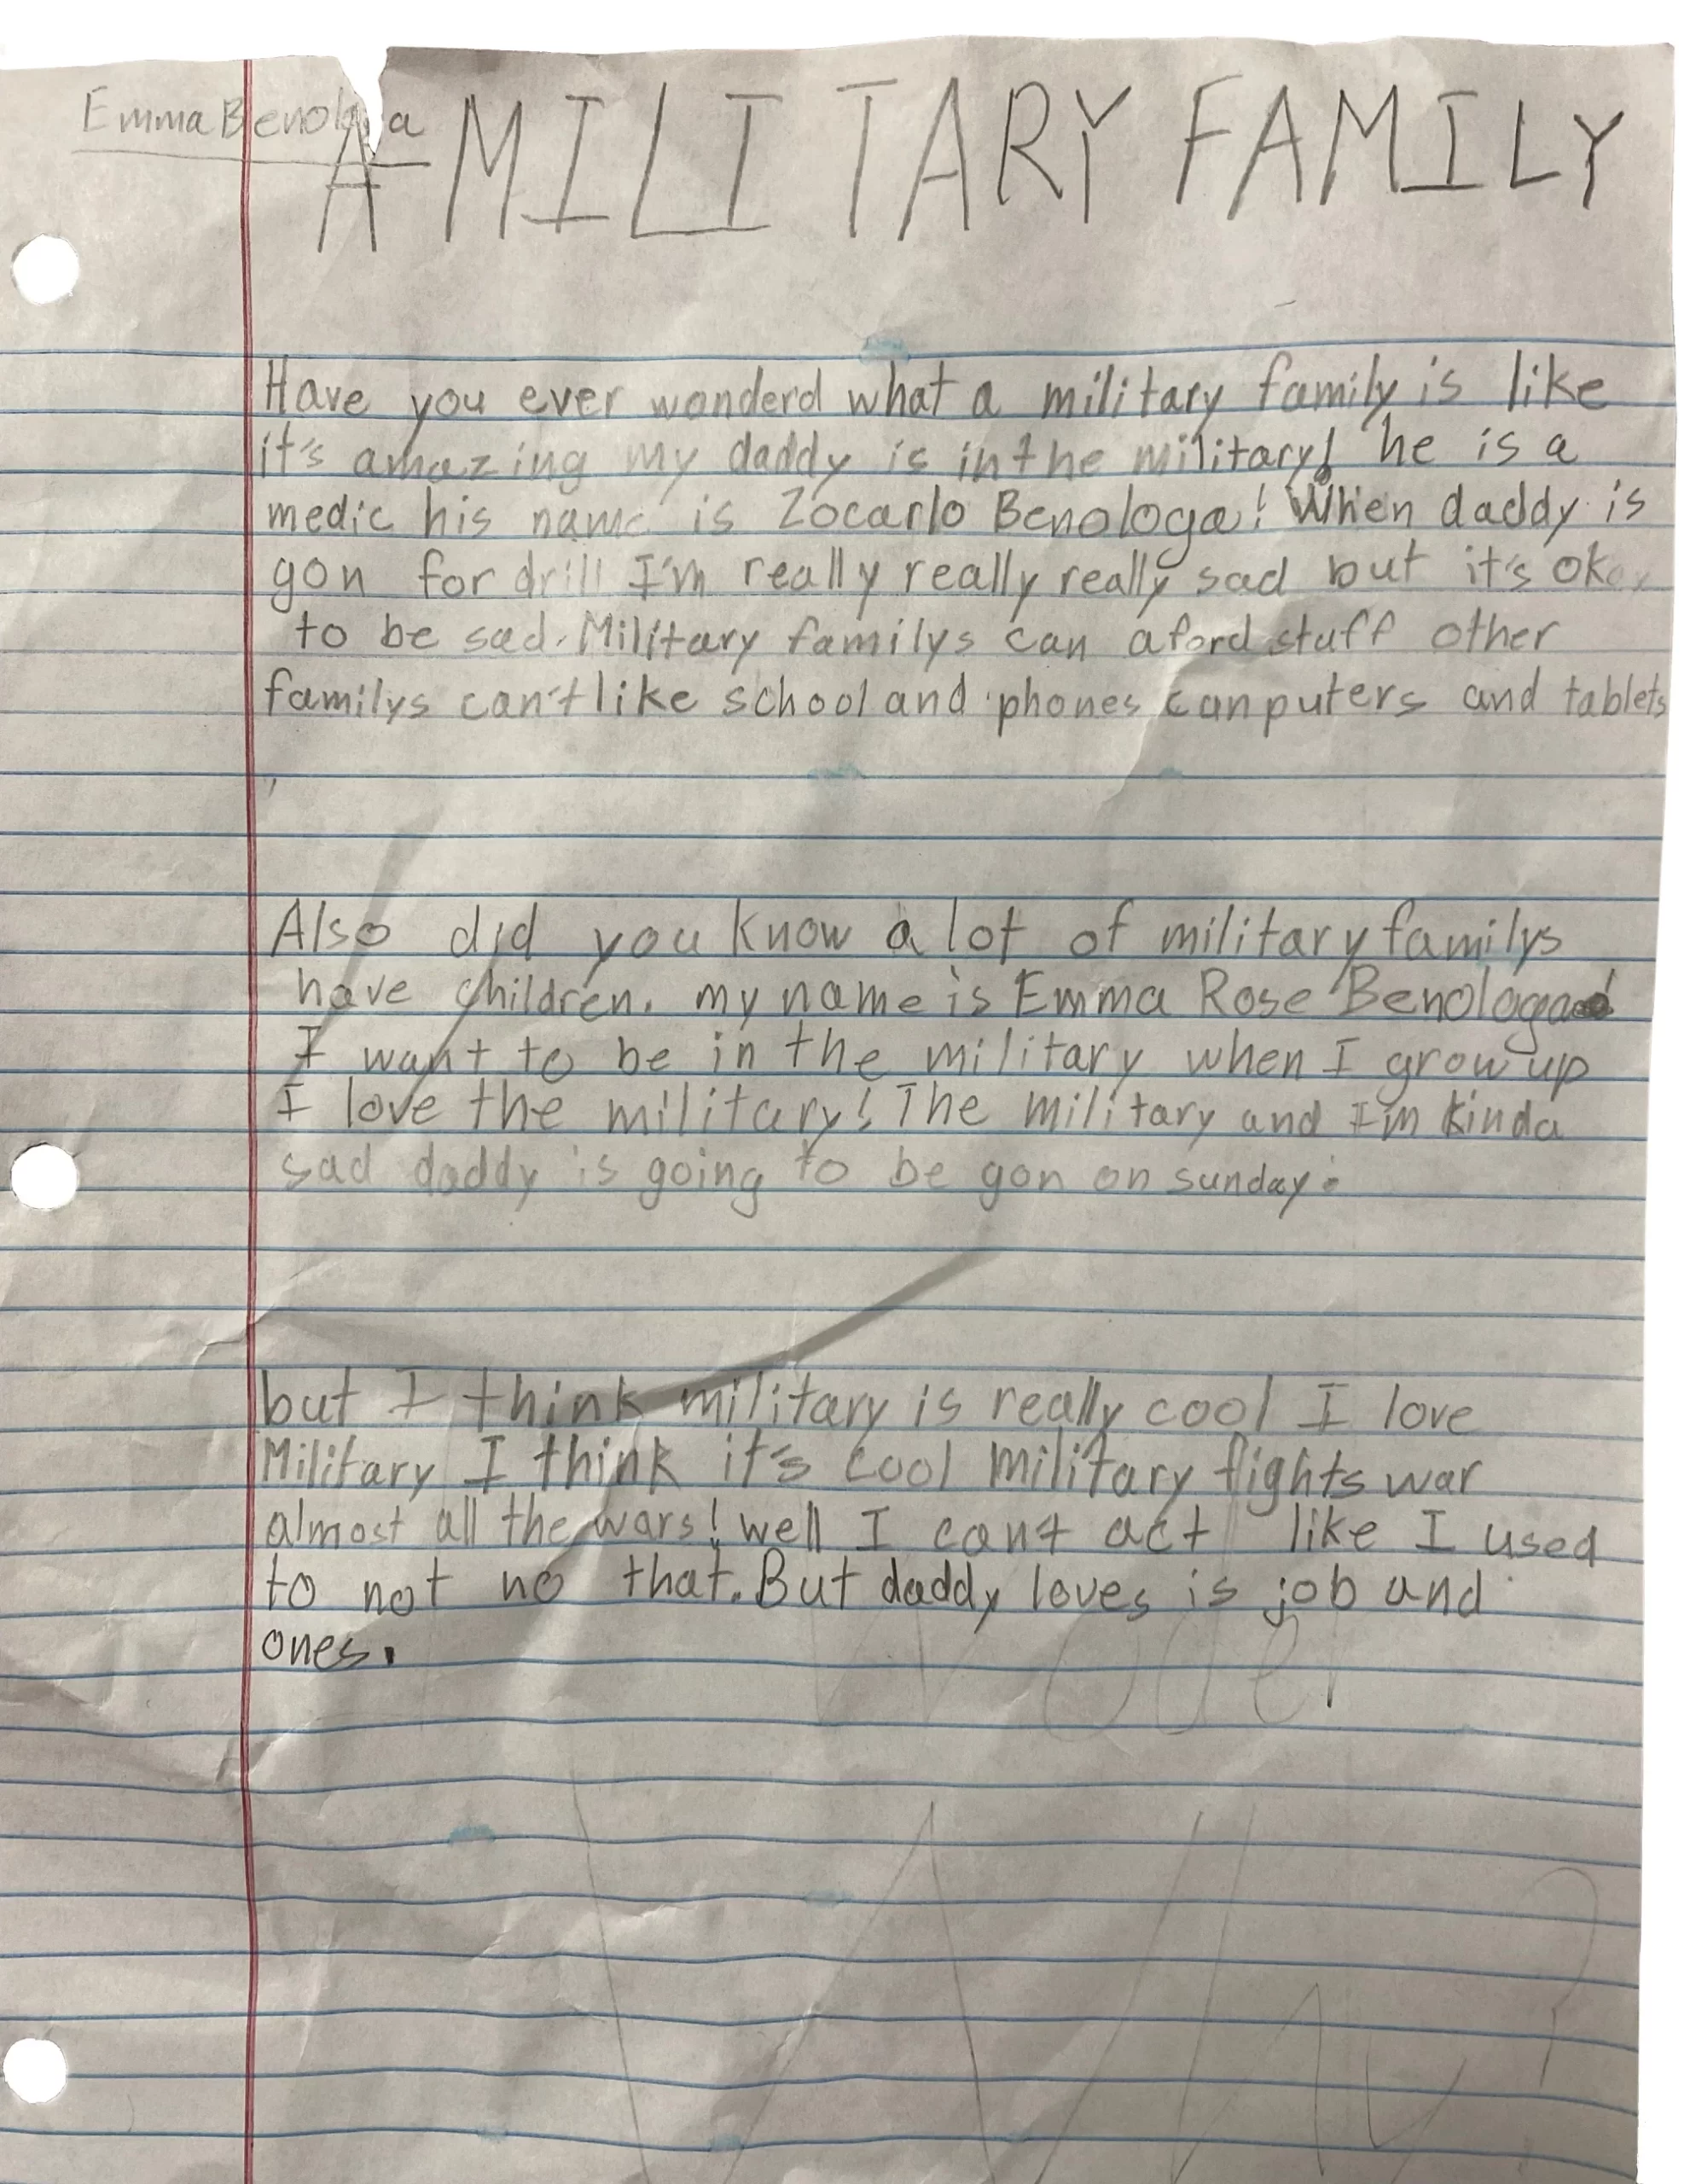 Emma Benologa
A MILITARY FAMILY
Have you ever wonderd what a military family is like
it's amazing my daddy is in the military! he is a
medic his name is Zocarlo Benologa! When daddy is
gon for drill I'm really really really sad but it's okay
to be sad. Military familys can aford stuff other
familys can't like school and phones canputers and tablets
Also did you know a lot of military familys
have children. my name is Emma Rose Benologa
I want to be in the military when I grow up
I love the military! The military and I'm kinda
sad daddy is going to be gon on sunday.
but I think military is really cool I love
Military I think it's cool military fights war
almost all the wars! well I cant act like I used
to not no that. But daddy loves is job and
ones.